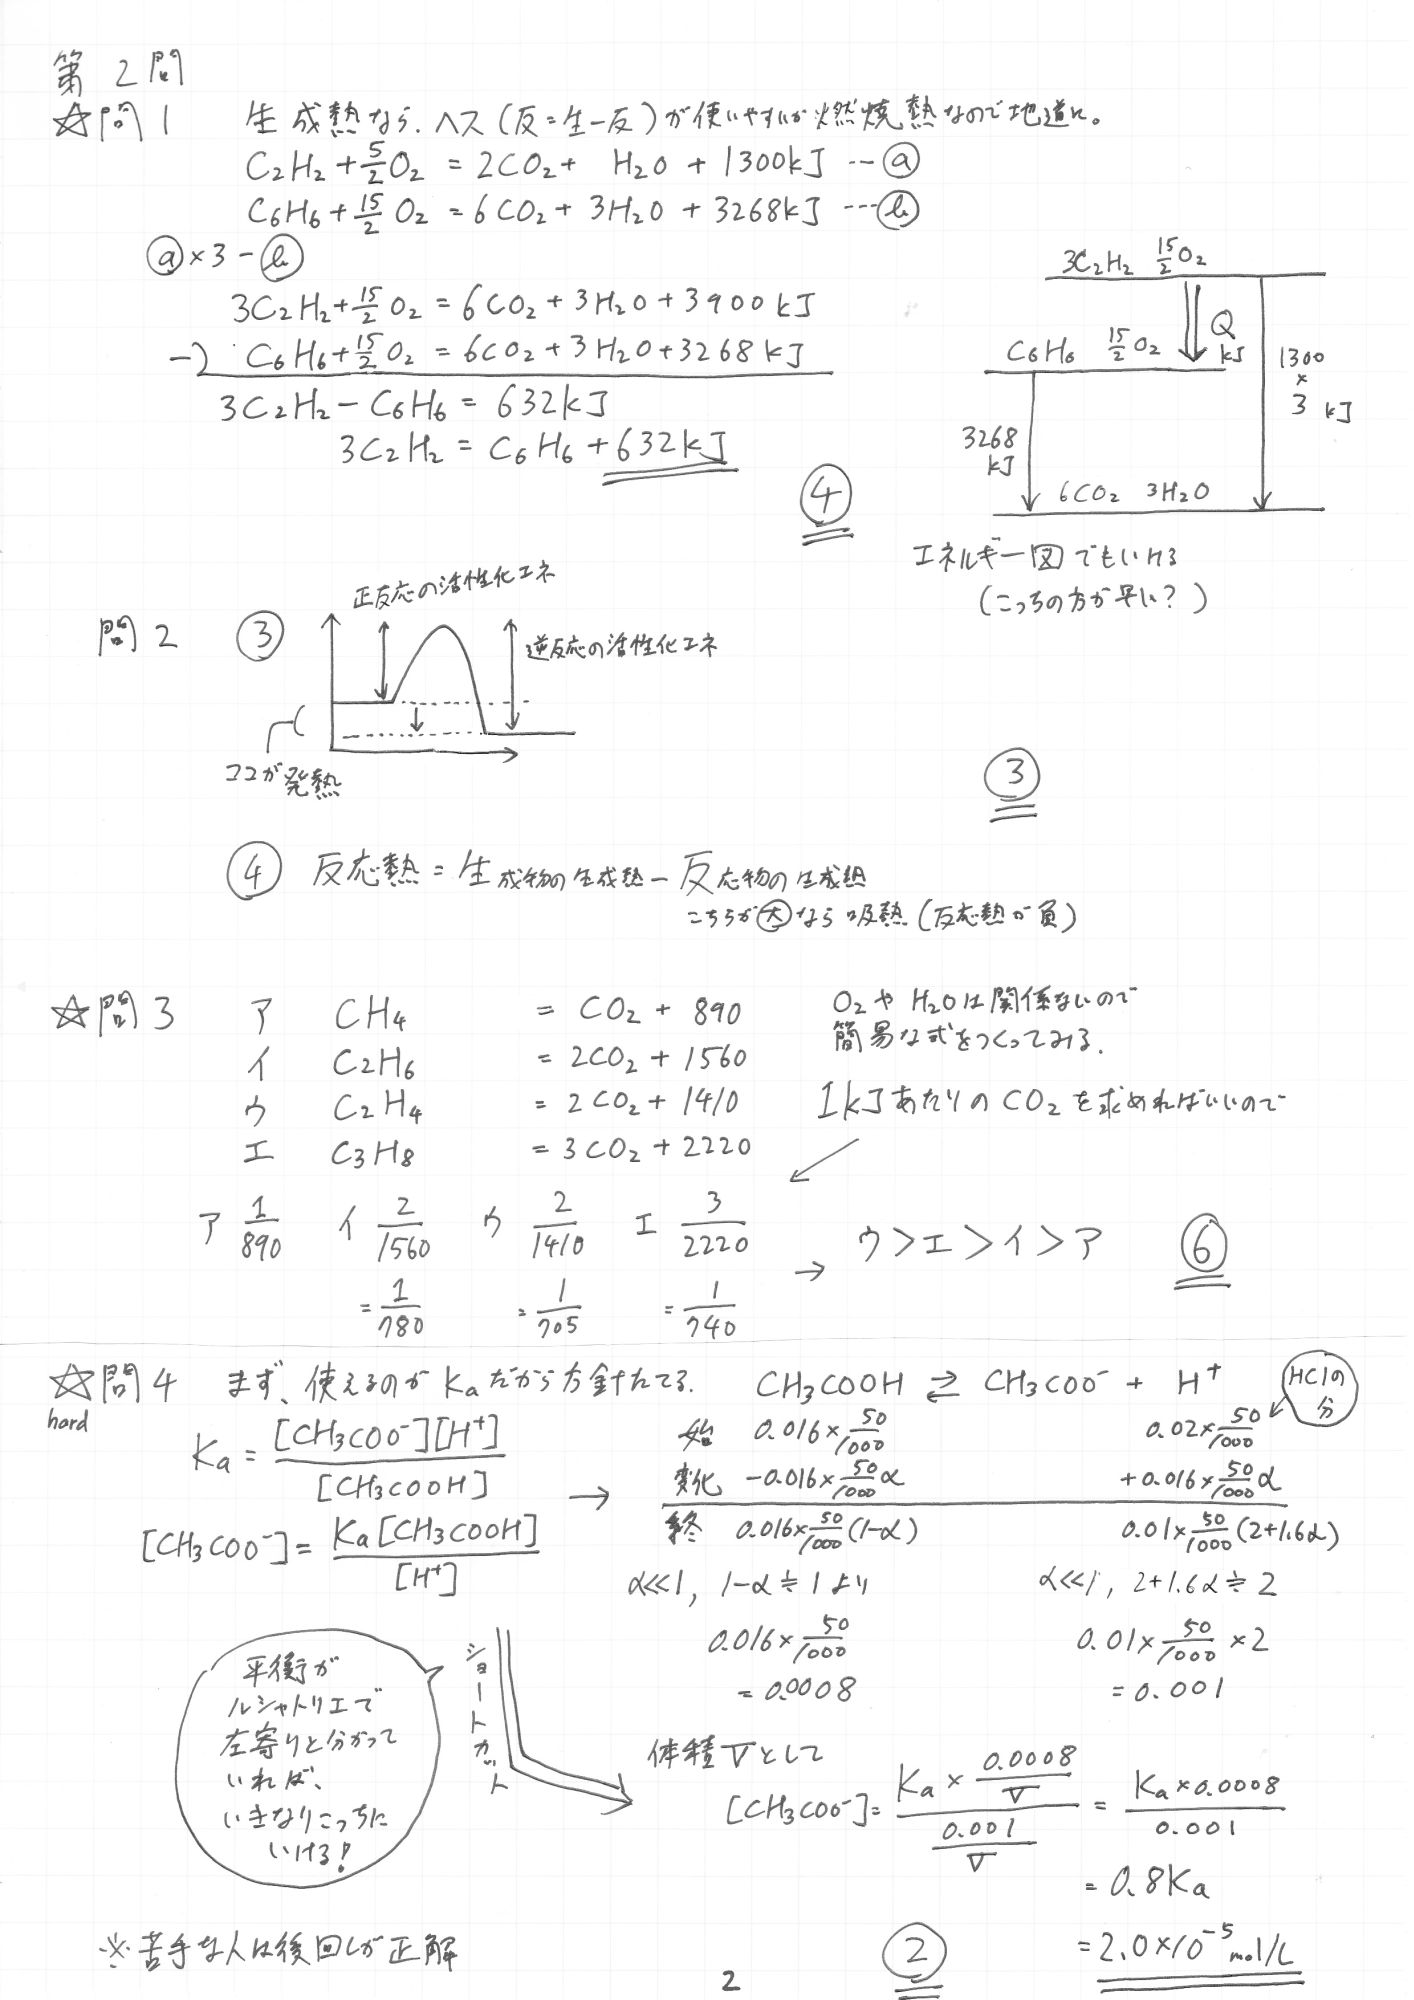 第2問
☆問1 生成熱なら、ヘス(反=生-反)が使いやすいが燃焼熱なので地道に。
C₂H₂ + 5/2 O₂ = 2CO₂ + H₂O + 1300kJ … ⓐ
C₆H₆ + 15/2 O₂ = 6CO₂ + 3H₂O + 3268kJ … ⓑ
ⓐ×3 - ⓑ
3C₂H₂ + 15/2 O₂ = 6CO₂ + 3H₂O + 3900kJ
-) C₆H₆ + 15/2 O₂ = 6CO₂ + 3H₂O + 3268kJ
3C₂H₂ - C₆H₆ = 632kJ
3C₂H₂ = C₆H₆ + 632kJ
④
3C₂H₂ 15/2 O₂
C₆H₆ 15/2 O₂
Q kJ
1300×3 kJ
3268 kJ
6CO₂ 3H₂O
エネルギー図でもいける
(こっちの方が早い?)
問2 ③
正反応の活性化エネ
逆反応の活性化エネ
ココが発熱
③
④ 反応熱 = 生成物の生成熱 - 反応物の生成熱
こちらが大なら吸熱(反応熱が負)
☆問3 ア CH₄ = CO₂ + 890
イ C₂H₆ = 2CO₂ + 1560
ウ C₂H₄ = 2CO₂ + 1410
エ C₃H₈ = 3CO₂ + 2220
O₂やH₂Oは関係ないので
簡易な式をつくってみる.
1kJあたりのCO₂を求めればいいので
ア 1/890 イ 2/1560 ウ 2/1410 エ 3/2220
= 1/780 = 1/705 = 1/740
→ ウ>エ>イ>ア ⑥
☆問4 まず、使えるのがKaだから方針たてる.
hard
Ka = [CH₃COO⁻][H⁺] / [CH₃COOH]
[CH₃COO⁻] = Ka[CH₃COOH] / [H⁺]
→
CH₃COOH ⇄ CH₃COO⁻ + H⁺
HClの分
始 0.016×50/1000 0.02×50/1000
変化 -0.016×50/1000 α +0.016×50/1000 α
終 0.016×50/1000 (1-α) 0.01×50/1000 (2+1.6α)
α≪1, 1-α≒1より α≪1, 2+1.6α≒2
0.016×50/1000 0.01×50/1000×2
= 0.0008 = 0.001
平衡が
ルシャトリエで
左寄りと分かって
いれば、
いきなりこっちに
いける!
ショートカット
体積Vとして
[CH₃COO⁻] = (Ka × 0.0008/V) / (0.001/V) = Ka×0.0008 / 0.001
= 0.8Ka
= 2.0×10⁻⁵ mol/L
②
※苦手な人は後回しが正解
2